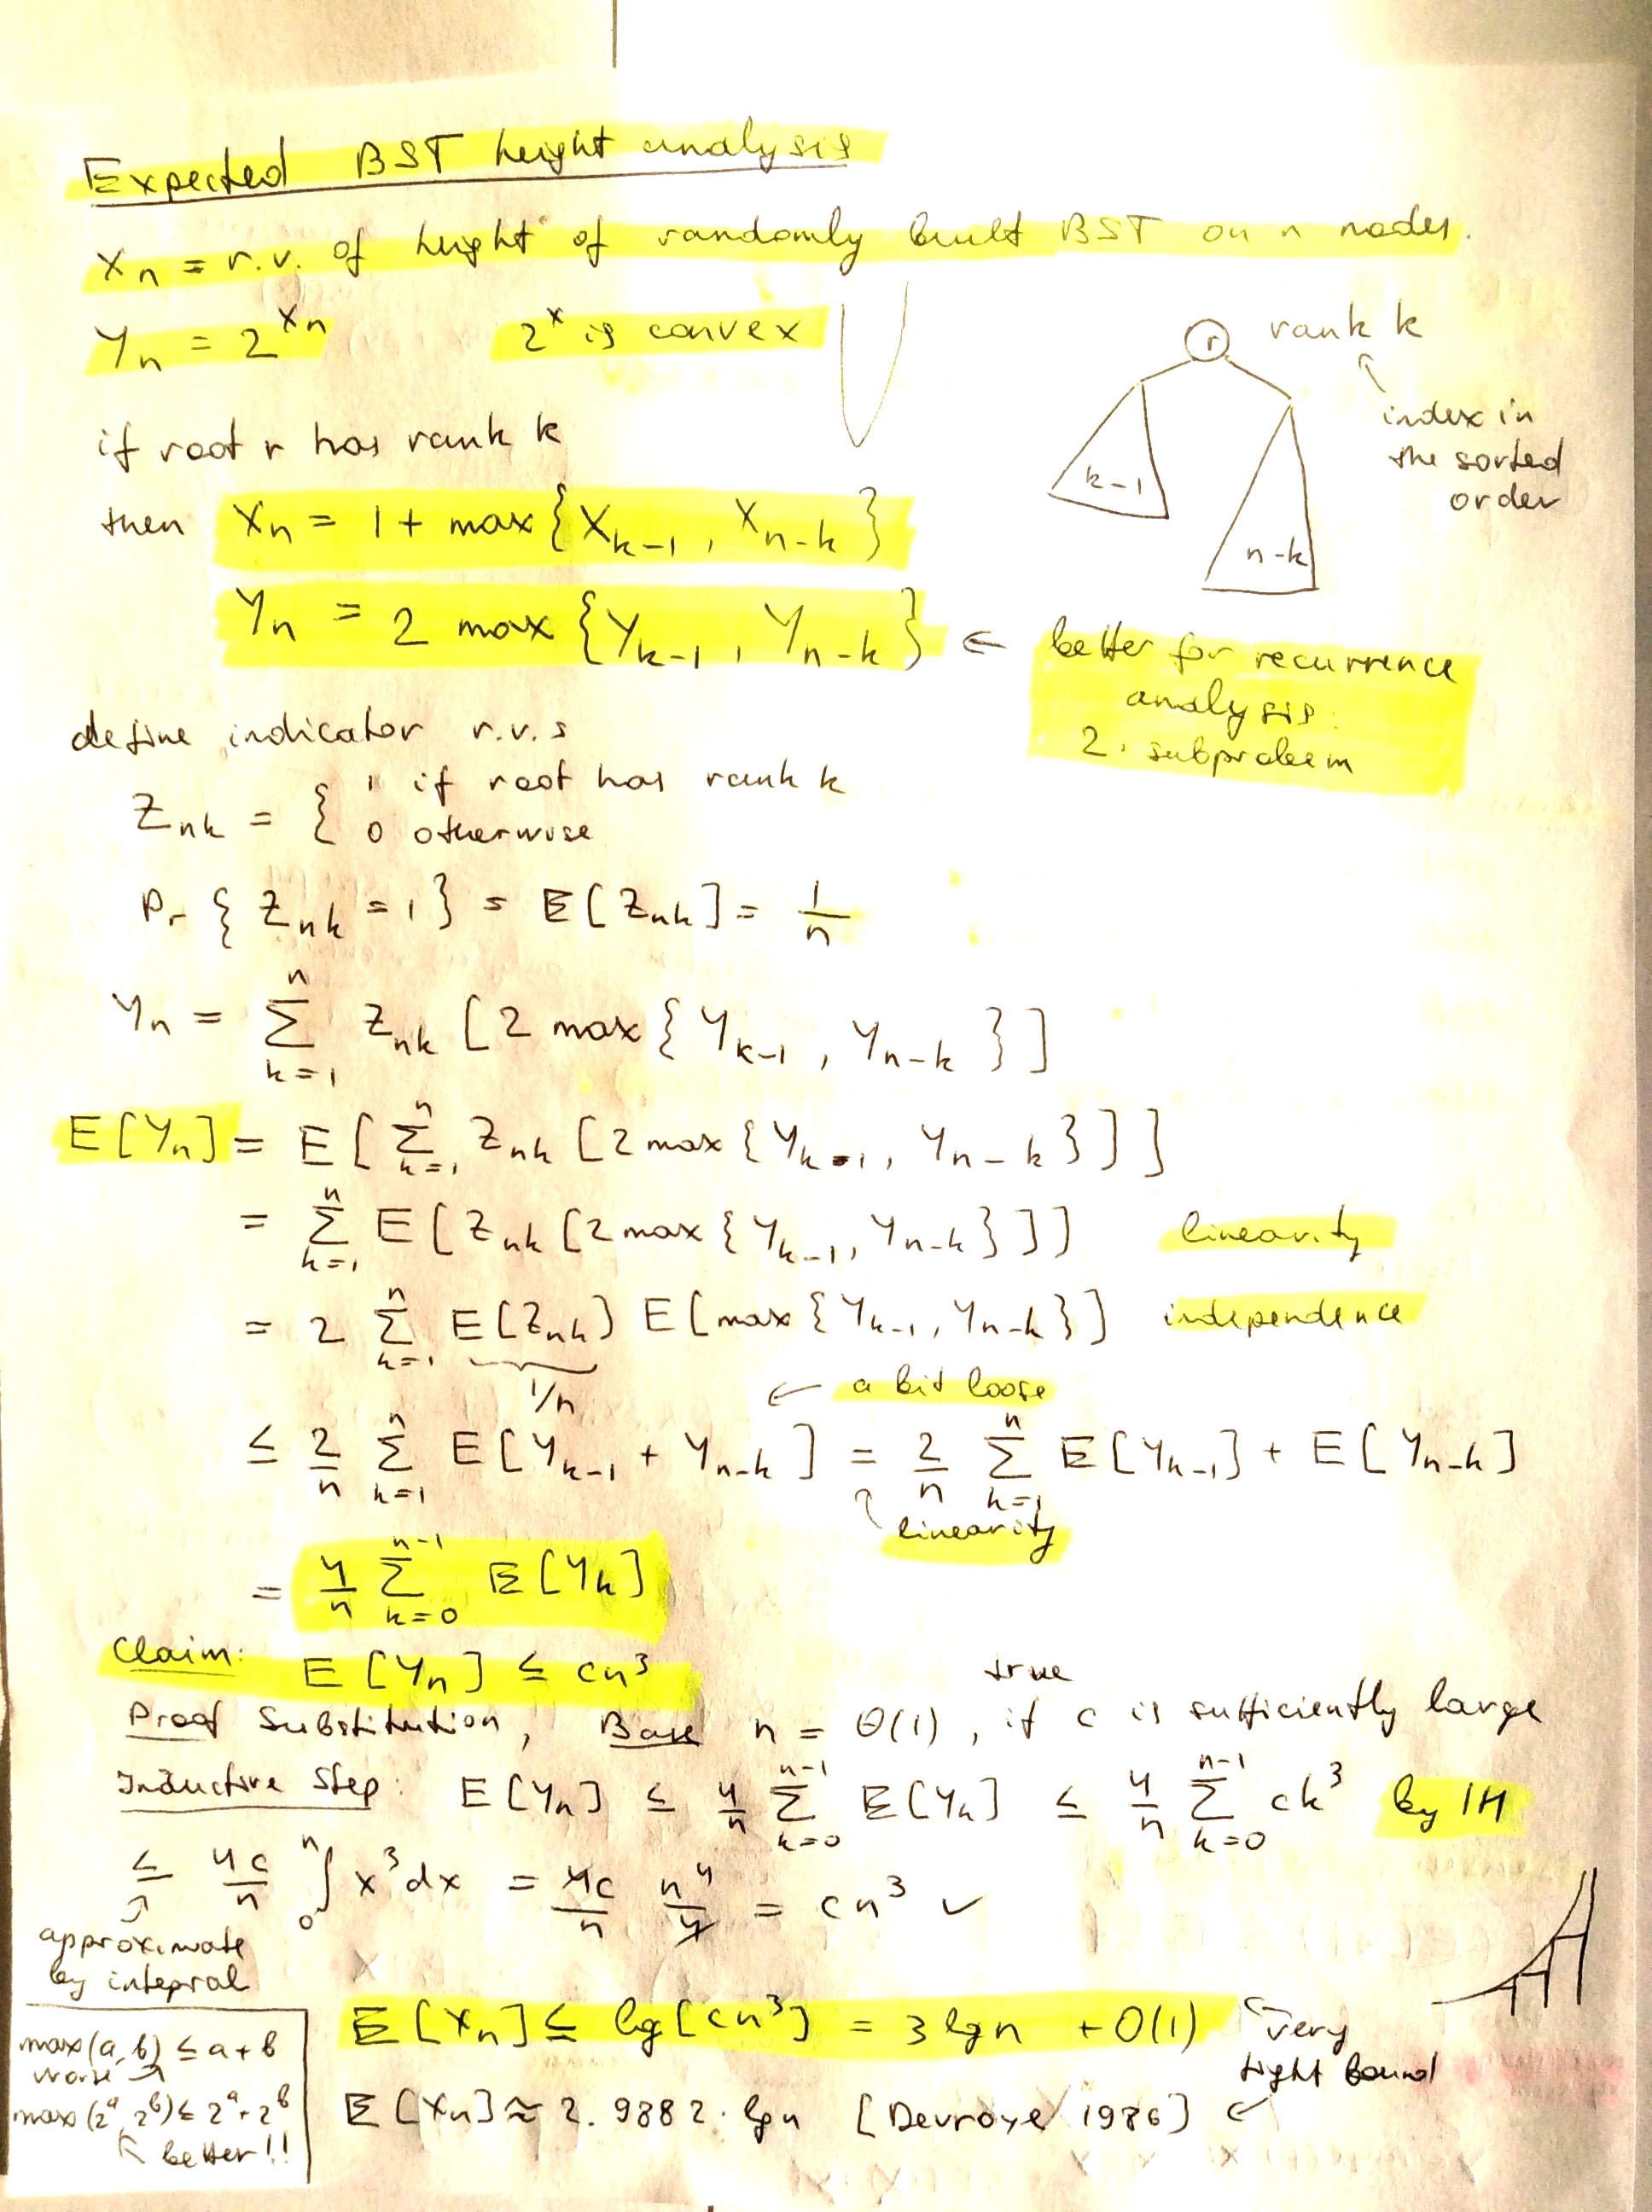 Expected BST height analysis
Xn = r.v. of height of randomly built BST on n nodes.
Yn = 2^Xn    2^x is convex
r    rank k
index in
the sorted
order
k-1
n-k
if root r has rank k
then Xn = 1 + max{Xk-1, Xn-k}
Yn = 2 max{Yk-1, Yn-k} ← better for recurrence
analysis:
2 · subproblem
define indicator r.v.s
Znk = { 1 if root has rank k
0 otherwise
Pr{Znk = 1} = E[Znk] = 1/n
Yn = Σ_{k=1}^{n} Znk [2 max{Yk-1, Yn-k}]
E[Yn] = E[Σ_{k=1}^{n} Znk [2 max{Yk-1, Yn-k}]]
= Σ_{k=1}^{n} E[Znk [2 max{Yk-1, Yn-k}]]    linearity
= 2 Σ_{k=1}^{n} E[Znk] E[max{Yk-1, Yn-k}]    independence
1/n    ← a bit loose
≤ 2/n Σ_{k=1}^{n} E[Yk-1 + Yn-k] = 2/n Σ_{k=1}^{n} E[Yk-1] + E[Yn-k]
linearity
= 4/n Σ_{k=0}^{n-1} E[Yk]
Claim: E[Yn] ≤ cn³
true
Proof Substitution, Base n = Θ(1), if c is sufficiently large
Inductive Step: E[Yn] ≤ 4/n Σ_{k=0}^{n-1} E[Yk] ≤ 4/n Σ_{k=0}^{n-1} ck³ by IH
≤ 4c/n ∫_0^n x³dx = 4c/n n⁴/4 = cn³ ✓
approximate
by integral
E[Xn] ≤ lg[cn³] = 3 lg n + O(1)    very
tight bound
E[Xn] ≈ 2.9882 · lg n [Devroye 1986] ←
max(a, b) ≤ a + b
worse
max(2^a, 2^b) ≤ 2^a + 2^b
better!!